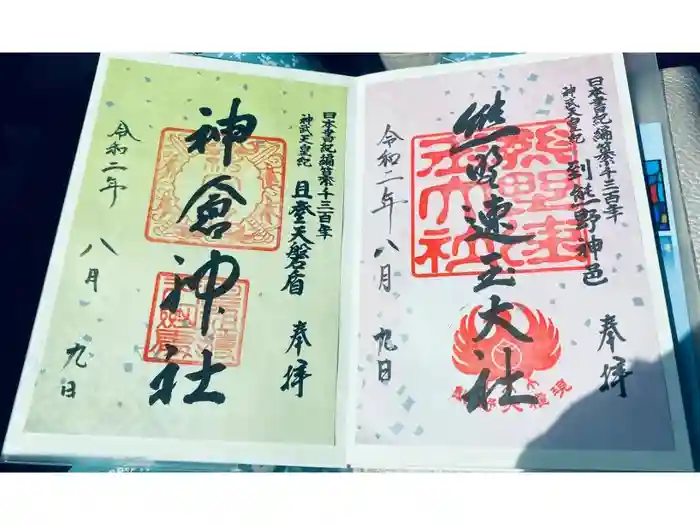 日本書紀編纂千三百年
神武天皇紀
到熊野神邑
奉拝
熊野速玉大社
令和二年
八月
九日
日本書紀編纂千三百年
神武天皇紀
且登天磐盾
奉拝
神倉神社
令和二年
八月
九日